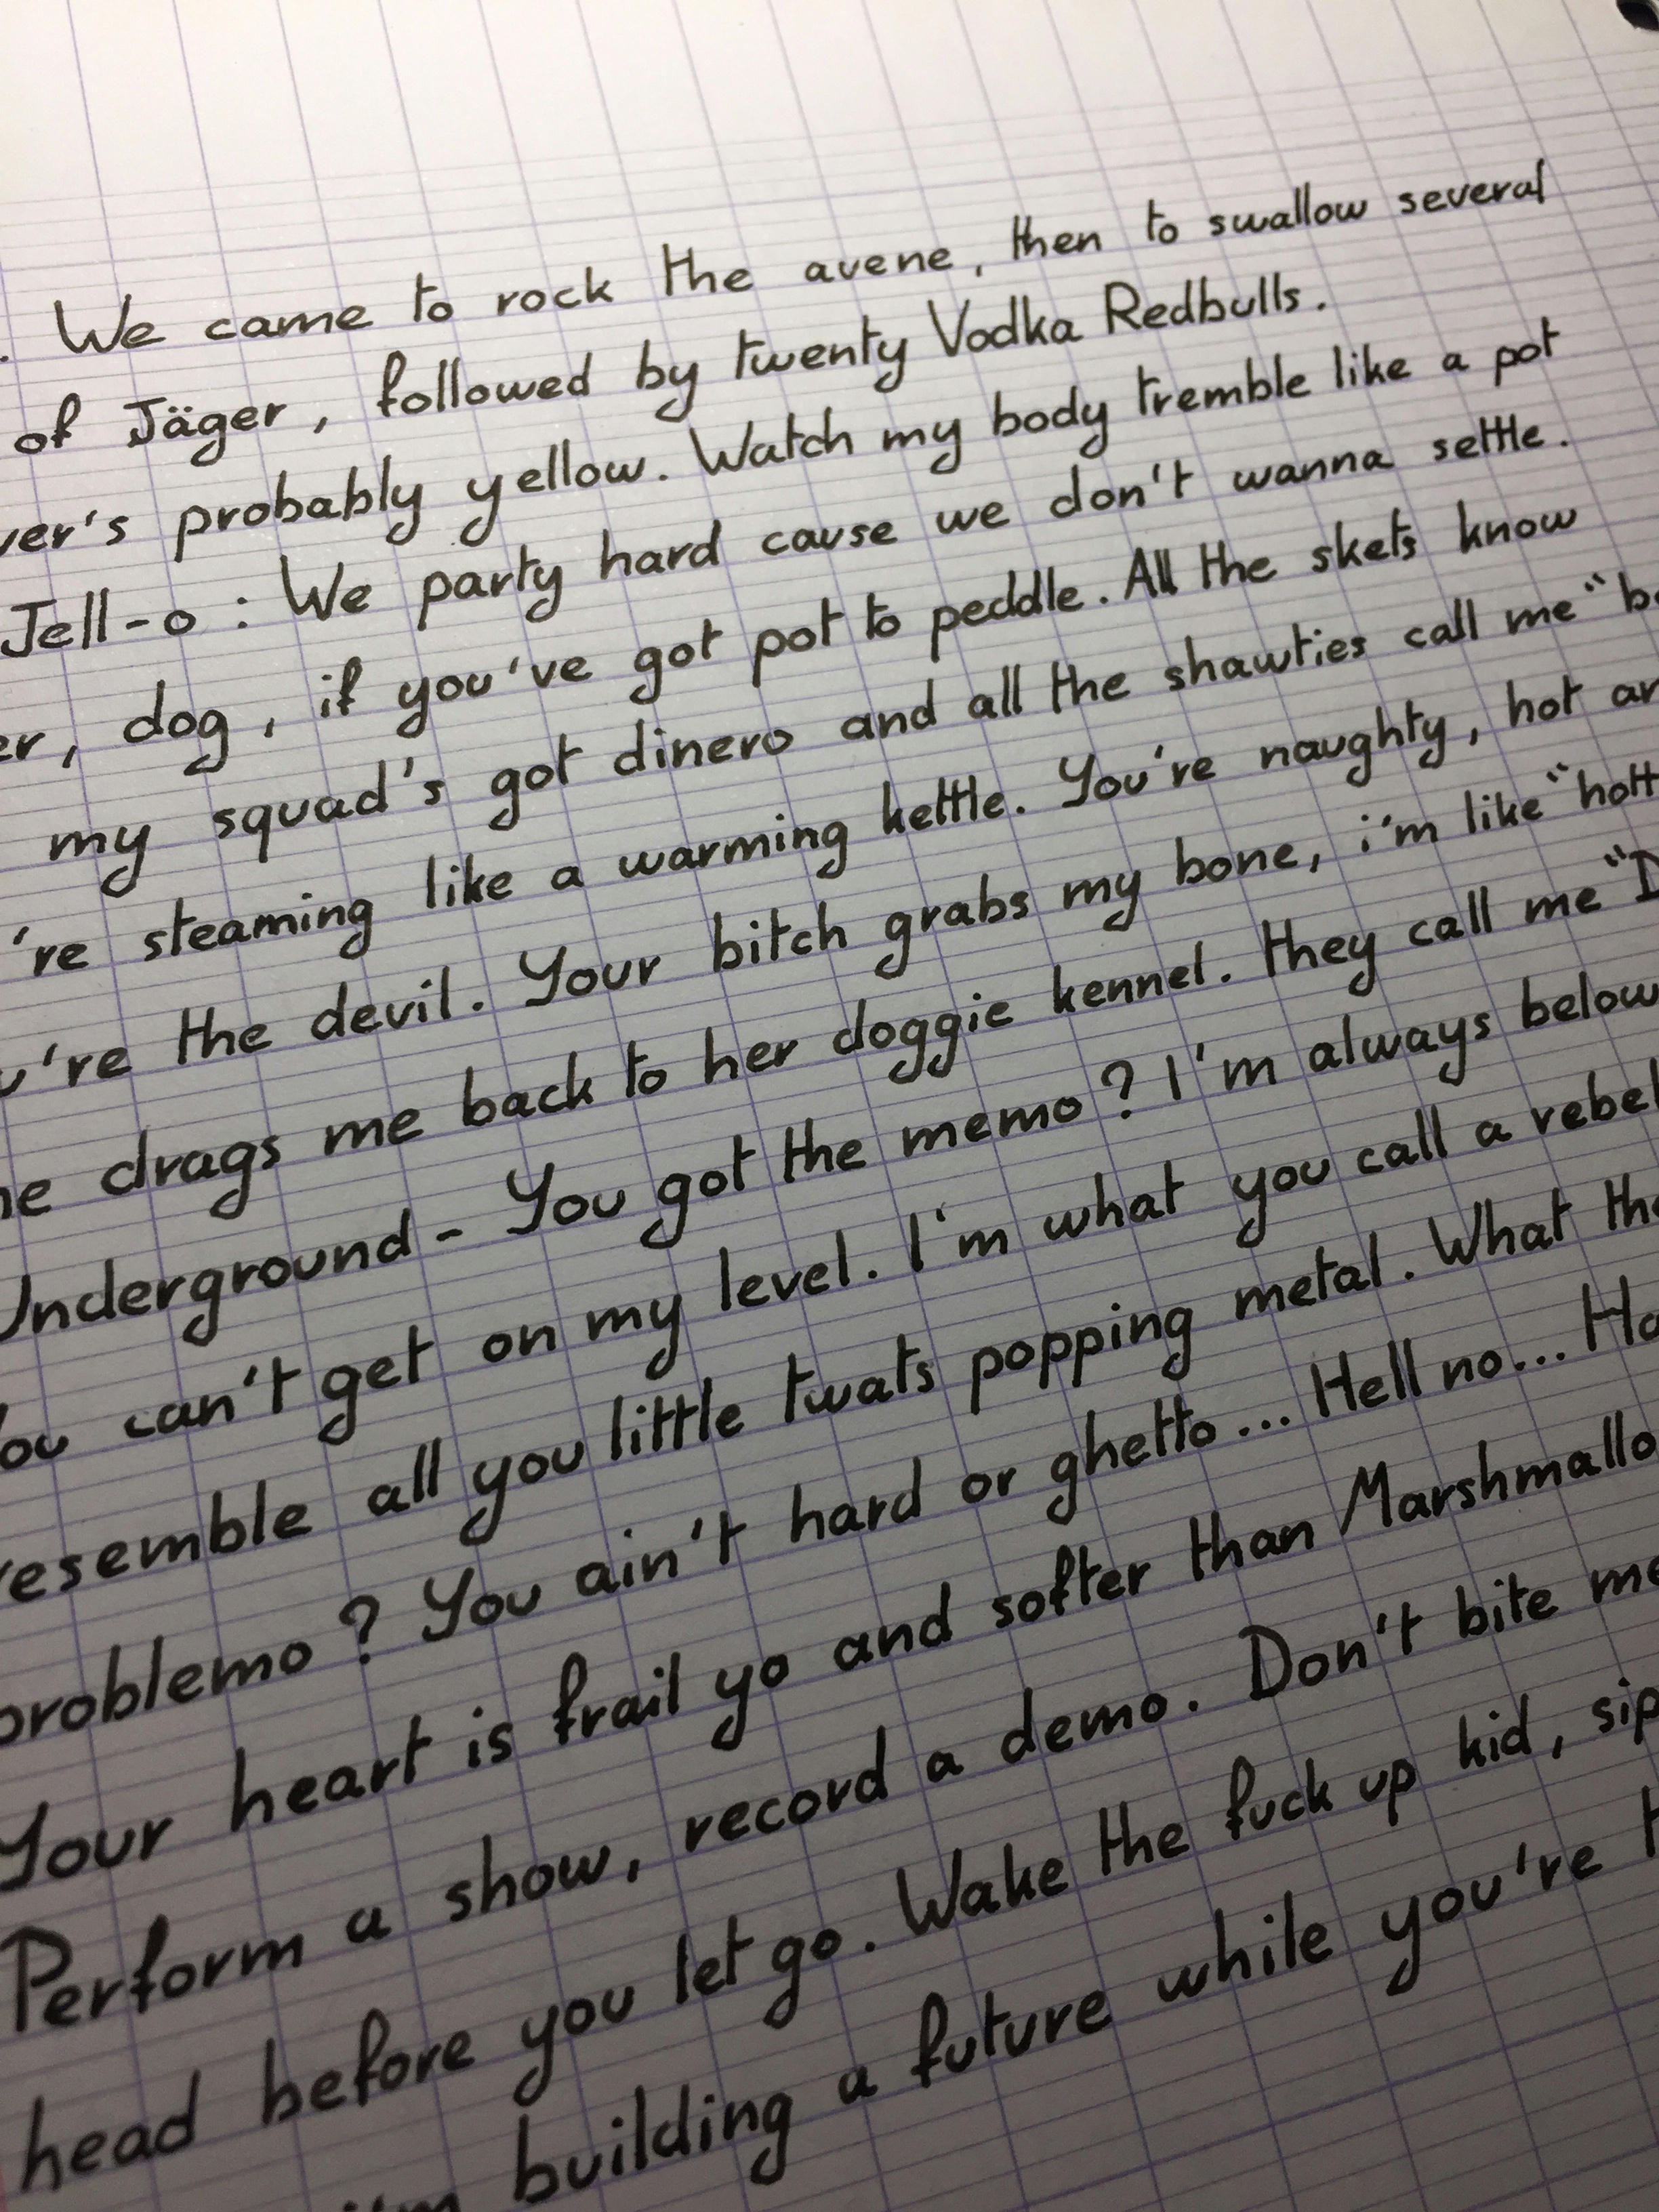 . We came to rock the avene, then to swallow several
of Jäger, followed by twenty Vodka Redbulls.
ver's probably yellow. Watch my body tremble like a pot
Jell-o : We party hard cause we don't wanna settle.
er, dog, if you've got pot to peddle. All the skets know
my squad's got dinero and all the shawties call me "be
're steaming like a warming kettle. You're naughty, hot an
u're the devil. Your bitch grabs my bone, i'm like "hott
he drags me back to her doggie kennel. They call me "D
Underground - You got the memo ? I'm always below
You can't get on my level. I'm what you call a rebel
resemble all you little twats popping metal. What the
problemo ? You ain't hard or ghetto... Hell no... Ha
Your heart is frail yo and softer than Marshmallo
Perform a show, record a demo. Don't bite me
head before you let go. Wake the fuck up kid, sip
i'm building a future while you're